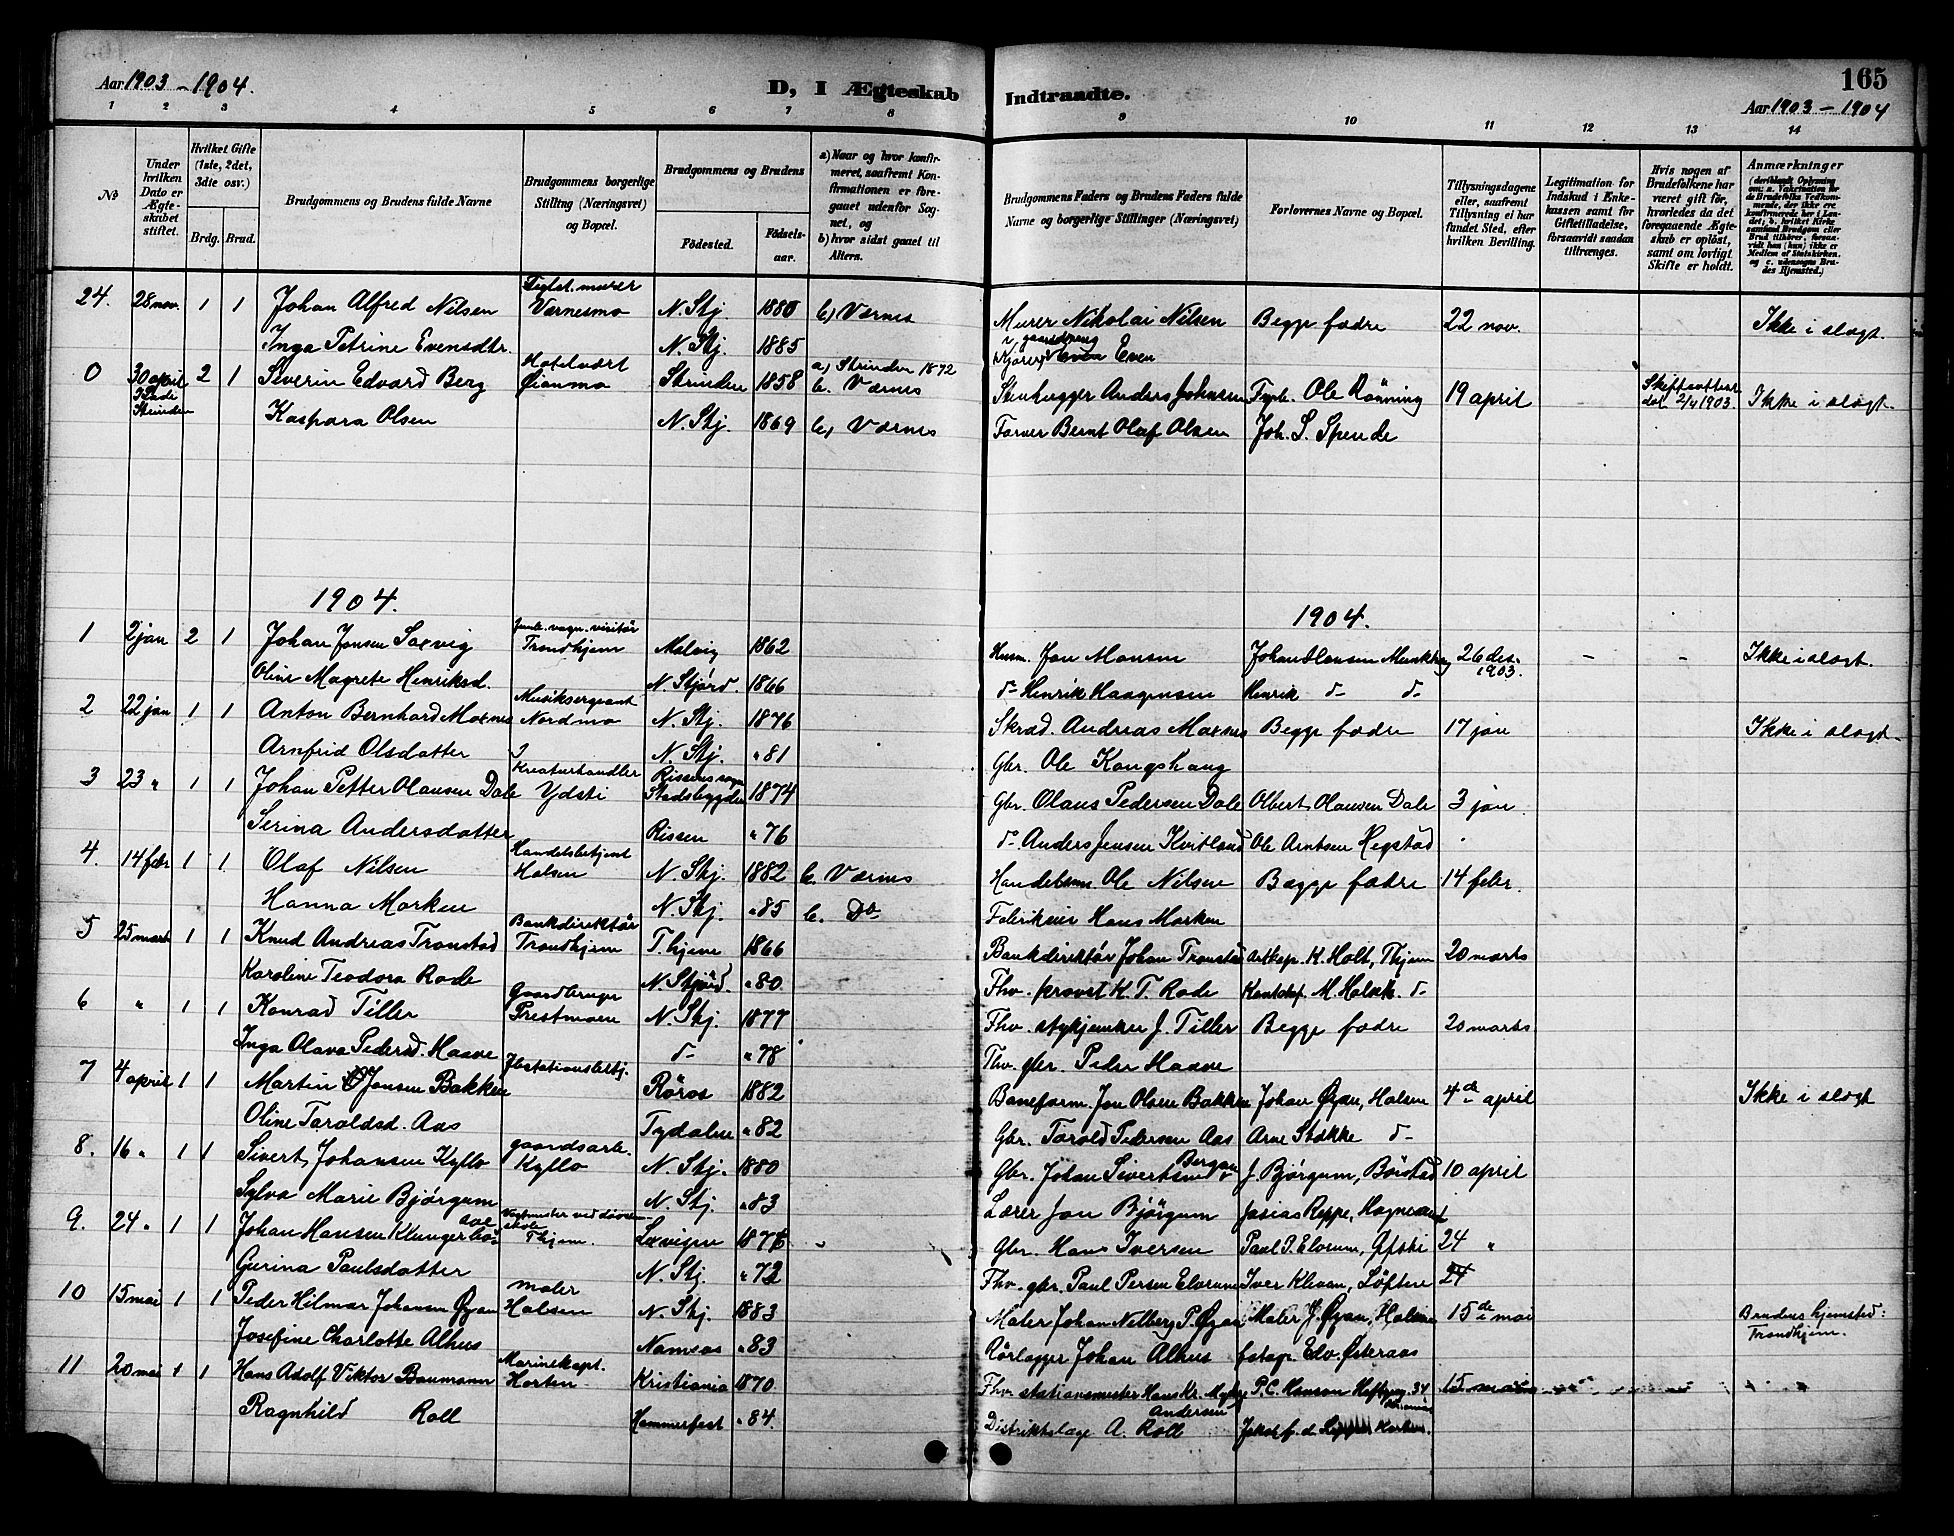 Aar 1903 - 1904.
D, I Ægteskab Indtraadte.
165
Aar 1903 - 1904
1 2 3 4 5 6 7 8 9 10 11 12 13 14
№
Under hvilken Dato er Ægteskabet stiftet.
Hvilket Gifte (1ste, 2det, 3die osv.)
Brdg. Brud.
Brudgommens og Brudens fulde Navne
Brudgommens borgerlige Stilling (Næringsvei) og Bopæl.
Brudgommens og Brudens
Fødested.
Fødselsaar.
a) Naar og hvor konfirmeret, saafremt Konfirmationen er foregaaet udenfor Sognet, og
b) hvor sidst gaaet til Alters.
Brudgommens Faders og Brudens Faders fulde Navne og borgerlige Stillinger (Næringsvei)
Forlovernes Navne og Bopæl.
Tillysningsdagene eller, saafremt Tillysning ei har fundet Sted, efter hvilken Bevilling.
Legitimation for Indskud i Enkekassen samt for Giftetilladelse, forsaavidt saadan tiltrænges.
Hvis nogen af Brudefolkene har været gift før, hvorledes da det foregaaende Ægteskab er opløst, samt om lovligt Skifte er holdt.
Anmærkninger (deriblandt Oplysning om: a. Vakcination for de Brudefolks Vedkommende, der ikke ere konfirmerede her i Landet; b. hvilket Kirkesamfund Brudgom eller Brud tilhører, forsaavidt han (hun) ikke er Medlem af Statskirken, og c. udensogns Brudes Hjemsted.)
24. 28 nov. 1 1 Johan Alfred Nilsen Teglst. murer Værnesmo N. Stj. 1880 b) Værnes Murer Nikolai Nilsen Begge fædre 22 nov. Ikke i slægt.
Inga Petrine Evensdtr. N. Stj. 1885 Even
0 30 april 2 1 Severin Edvard Berg Hotelvært Øianmo Strinden 1858 a) Strinden 1872 b. Værnes Stenhugger Anders Johansen Ole Rønning 19 april 2/4 1903. Ikke i slægt.
Lade Strinden
Kaspara Olsen N. Stj. 1869 b, Værnes Farver Bernt Olaf Olsen Joh. S. Spende
1904. 1904.
1 2 jan 2 1 Johan Jonsen Saxvig Jernb. vogn. visitør Trondhjem Malvig 1862 Husm. Jon Monsen Johan Hansen 26 des. 1903. - - Ikke i slægt.
Oline Magrete Henriksd. N. Stjørd. 1866 d- Henrik Haagensen Henrik d- d-
2 22 jan 1 1 Anton Bernhard Moxnes Musiksergeant Nordmo N. Stj. 1876 Skræd. Andreas Moxnes Begge fædre 17 jan Ikke i slægt.
Arnfrid Olsdatter N. Stj. " 81 Gbr. Ole Kongshaug
3 23 " 1 1 Johan Petter Olausen Dale Kreaturhandler Ydsti Rissens sogn Stadsbygden 1874 Gbr. Olaus Pedersen Dale Albert Olausen Dale 3 jan.
Serina Andersdatter Rissen " 76 d- Anders Jensen Kvitland Ole Arntsen Hegstad
4. 14 febr 1 1. Olaf Nilsen Handelsbetjent Halsen N. Stj. 1882 b. Værnes Handelsm. Ole Nilsen Begge fædre 14 febr.
Hanna Marken N. Stj. " 85 b. Do Fabrikeier Hans Marken
5 25 marts 1 1 Knud Andreas Tronstad Bankdirektør Trondhjem T.hjem 1866 Bankdirektør Johan Tronstad K. Holt, Thjem 20 marts
Karoline Teodora Rode N. Stjørd. " 80 Fhv. provst K. T. Rode M. Halseth d-
6 " 1 1 Konrad Tiller Gaardbruger Prestmoen N. Stj. 1877 Fhv. stykjunker J. Tiller Begge fædre 20 marts
Inga Olava Pedersd. Haave d- " 78 Fhv. gbr. Peder Haave
7 4 april 1 1 Martin Jonsen Bakken Jbstationsbetj. Røros 1882 Baneform. Jon Olsen Bakken Johan Øyan, Halsen 4de april Ikke i slægt
Oline Taroldsd. Aas Tydalen " 82 Gbr. Tarold Pedersen Aas Arne Stokke d-
8. 16 " 1 1 Sivert Johansen Kyllo gaardsarb. Kyllo N. Stj. 1880 Gbr. Johan Sivertsen Bergan J. Bjørgum, 10 april
Sylva Marie Bjørgum N. Stj. " 83 Lærer Jon Bjørgum Josias Reppe,
9. 24 " 1 1 Johan Hansen Klungerbo Thjem. 187 Gbr. Hans Iversen Paul P. Elvrum, 24 "
Gurina Paulsdatter N. Stj. " 72 Fhv. gbr. Paul Persen Elvrum Iver Klevan, 24
10 15 mai 1 1 Peder Hilmar Johansen Øyan maler Halsen N. Stj. 1883 Maler Johan P. Øyan Maler J. Øyan, Halsen 15de mai Brudens hjemsted: Trondhjem.
Josefine Charlotte Alhus Namsos " 83 Rørlægger Johan Alhus Edv. Østeraas
11 20 mai 1 1 Hans Adolf Viktor Baumann Marinekapt. Horten Kristiania 1870 Fhv. stationsmester Hans Kr. P. C. Hanson 15 mai
Ragnhild Roll Hammerfest " 84. Andersen Distriktslæge A. Roll